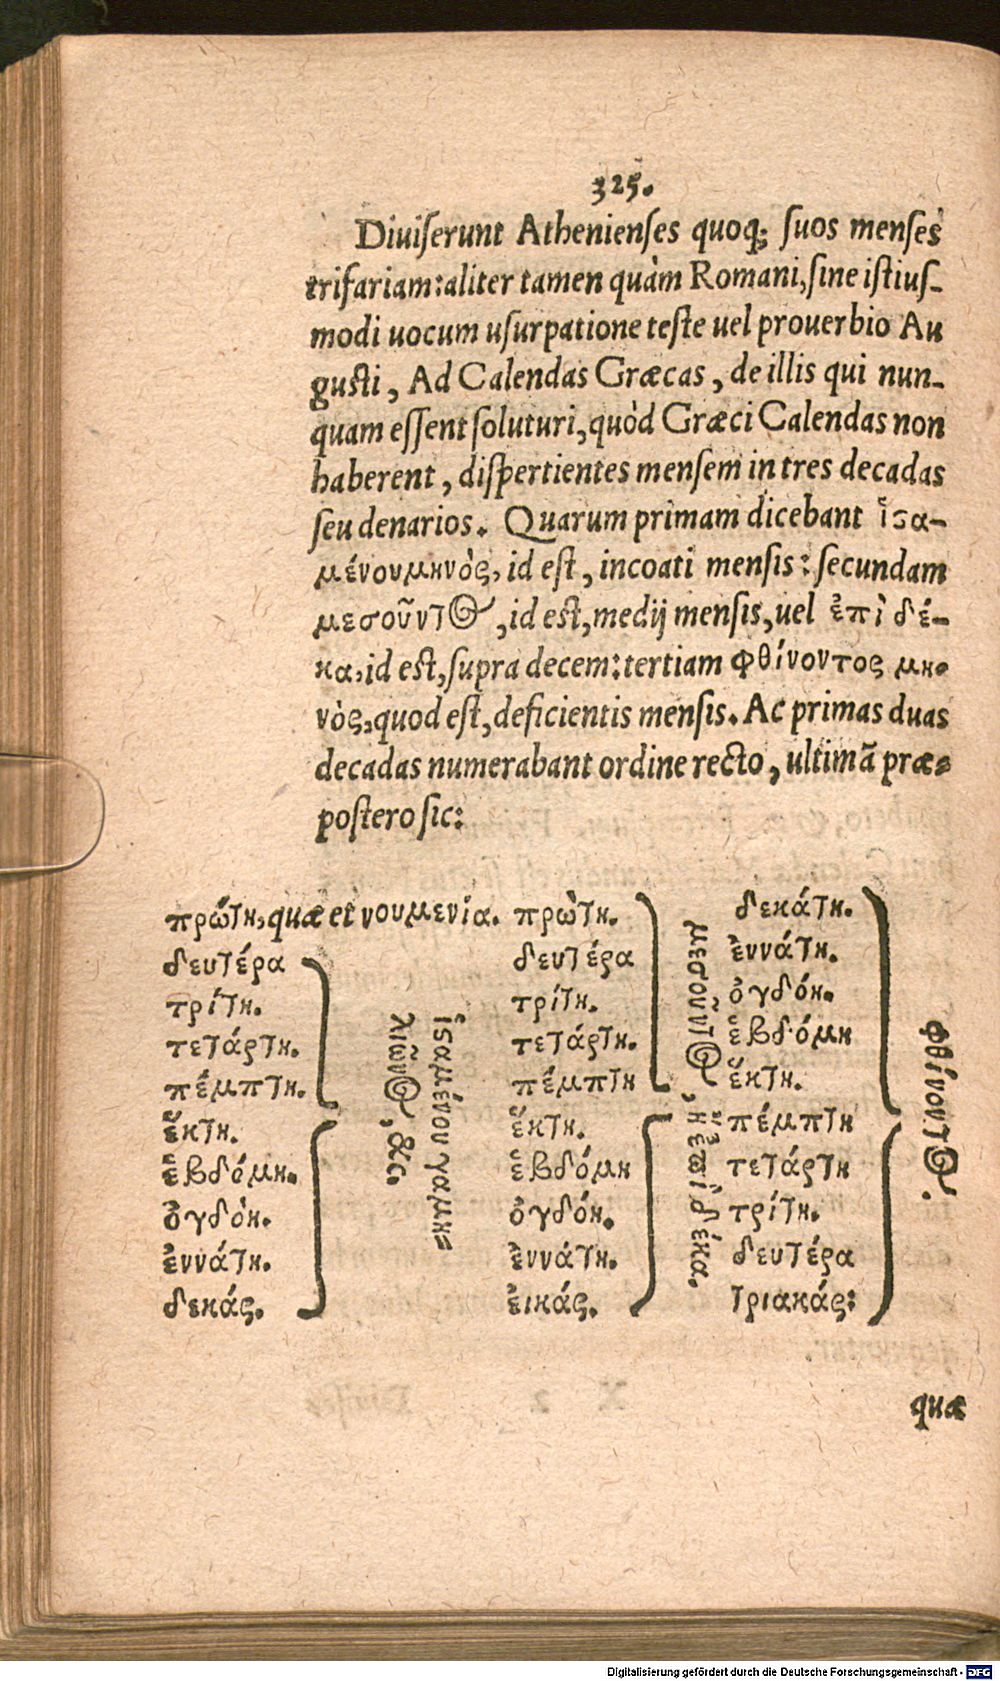 325.
Diuiſerunt Athenienſes quoq; ſuos menſes
trifariam: aliter tamen quàm Romani, ſine iſtiuſ-
modi uocum uſurpatione teſte uel prouerbio Au
guſti, Ad Calendas Græcas, de illis qui nun-
quam eſſent ſoluturi, quòd Græci Calendas non
haberent, diſpertientes menſem in tres decadas
ſeu denarios. Quarum primam dicebant ἱϛα-
μένουμηνὸς, id eſt, incoati menſis: ſecundam
μεσοῦντος, id eſt, medij menſis, uel ἐπὶ δέ-
κα, id eſt, ſupra decem: tertiam φθίνοντος μη-
νὸς, quod eſt, deficientis menſis. Ac primas duas
decadas numerabant ordine recto, ultimã præ-
poſtero ſic:
πρώτη, quæ et νουμενία.
δευτέρα
τρίτη.
τετάρτη.
πέμπτη.
ἕκτη.
ἑβδόμη.
ὀγδὸη.
ἐννάτη.
δεκάς.
πρὼτη.
δευτέρα
τρίτη.
τετάρτη.
πέμπτη
ἕκτη.
ἑβδόμη
ὀγδόη.
ἐννάτη.
ἐικάς.
μεσοῦντος, ἢ ἐπὶ δέκα.
δεκάτη.
ἐννάτη.
ὀγδόη.
ἑβδόμη
ἕκτη.
πέμπτη
τετάρτη
τρίτη.
δευτέρα
τριακάς:
φθίνοντος.
quæ
Digitalisierung gefördert durch die Deutsche Forschungsgemeinschaft - DFG